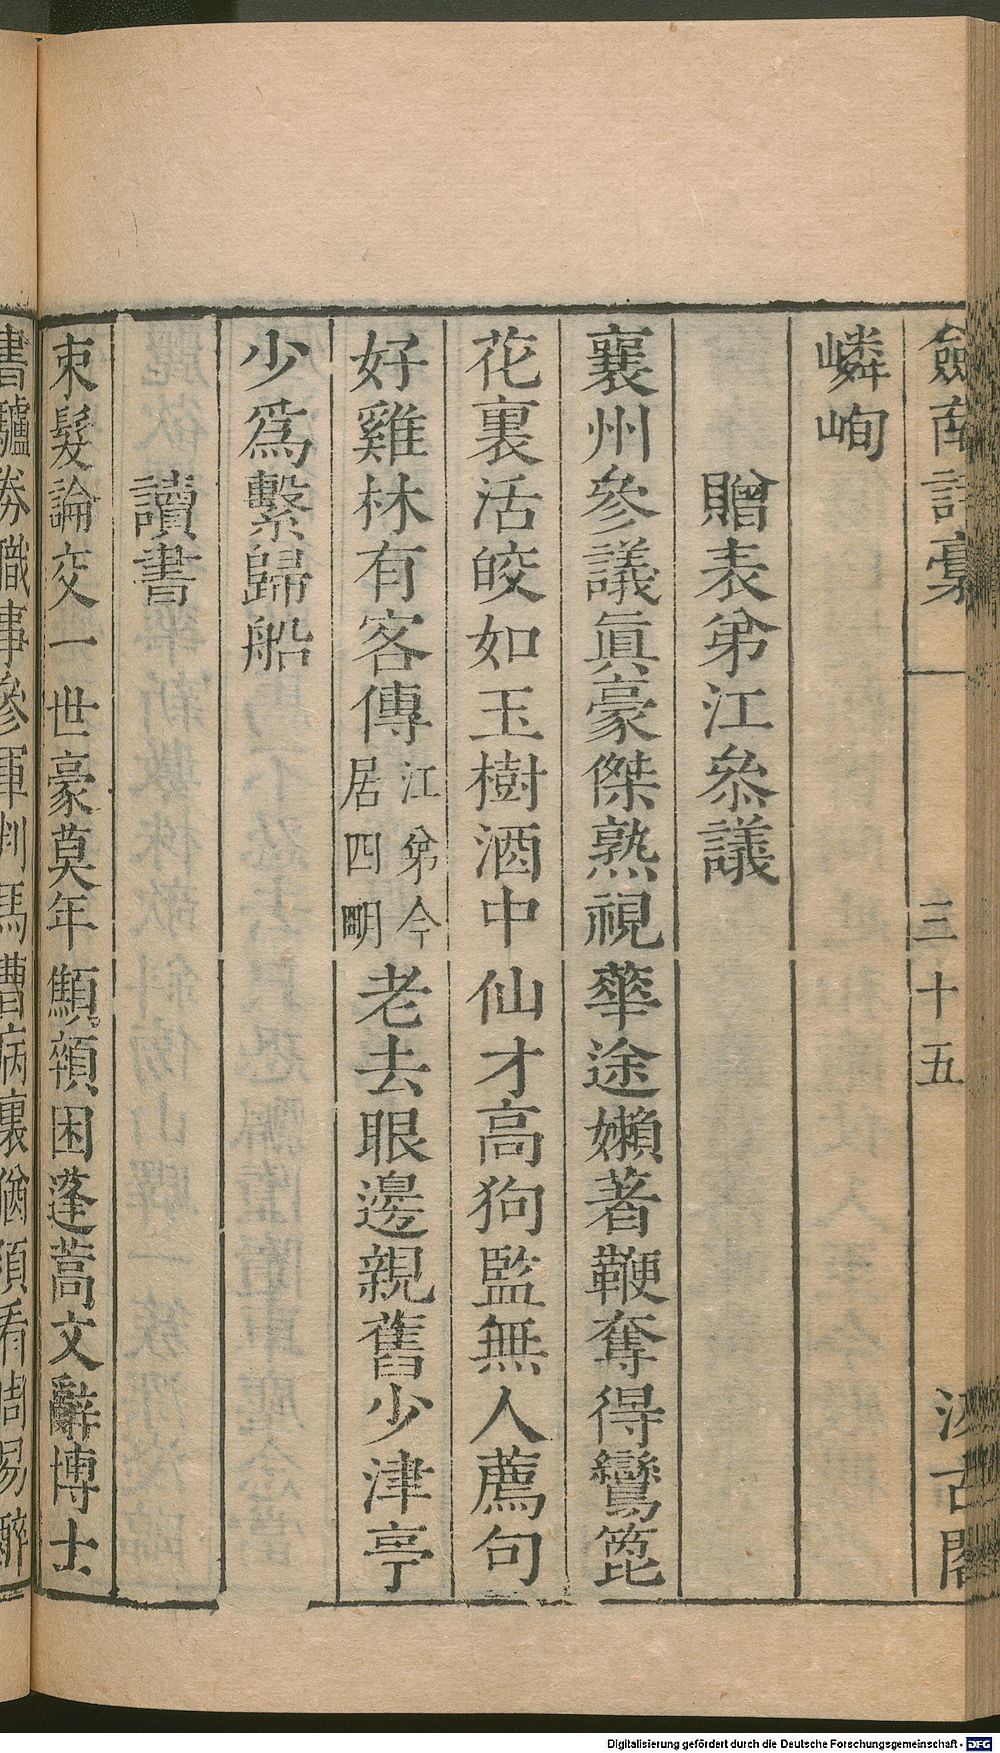 劍南詩藁
三十五
汲古閣
嶙峋
贈表弟江參議
襄州參議眞豪傑熟視華途嬾著鞭奪得鸞篦
花裏活皎如玉樹酒中仙才高狗監無人薦句
好雞林有客傳江弟今居四明老去眼邊親舊少津亭
少爲繫歸船
讀書
束髮論交一世豪莫年顦顇困蓬蒿文辭博士
書驢券職事參軍判馬曹病裏猶須看周易醉
Digitalisierung gefördert durch die Deutsche Forschungsgemeinschaft - DFG